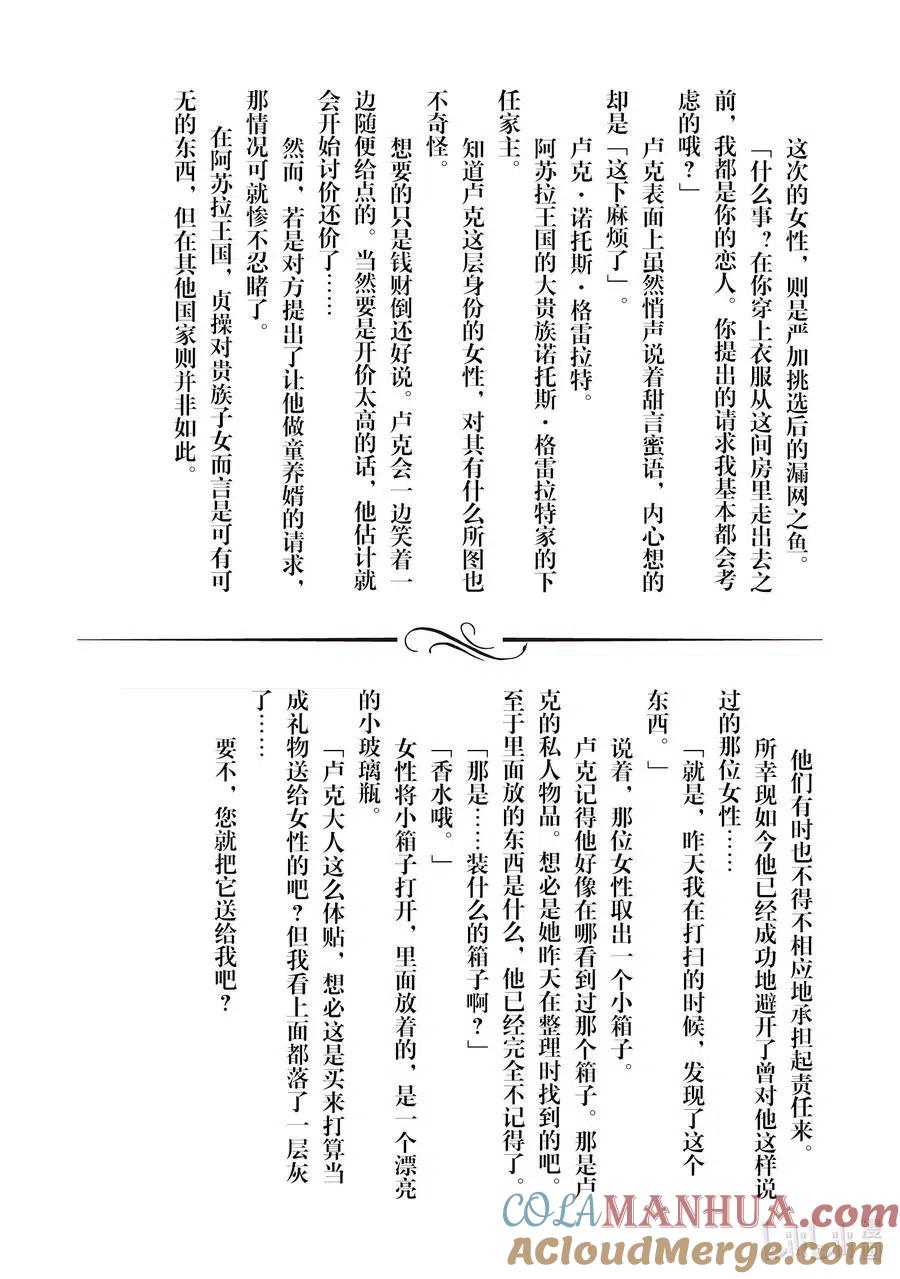 这次的女性，则是严加挑选后的漏网之鱼。
「什么事？在你穿上衣服从这间房里走出去之
前，我都是你的恋人。你提出的请求我基本都会考
虑的哦？」
卢克表面上虽然悄声说着甜言蜜语，内心想的
却是「这下麻烦了」。
卢克·诺托斯·格雷拉特。
阿苏拉王国的大贵族诺托斯·格雷拉特家的下
任家主。
知道卢克这层身份的女性，对其有什么所图也
不奇怪。
想要的只是钱财倒还好说。卢克会一边笑着一
边随便给点的。当然要是开价太高的话，他估计就
会开始讨价还价了……
然而，若是对方提出了让他做童养婿的请求，
那情况可就惨不忍睹了。
在阿苏拉王国，贞操对贵族子女而言是可有可
无的东西，但在其他国家则并非如此。
他们有时也不得不相应地承担起责任来。
所幸现如今他已经成功地避开了曾对他这样说
过的那位女性……
「就是，昨天我在打扫的时候，发现了这个
东西。」
说着，那位女性取出一个小箱子。
卢克记得他好像在哪看到过那个箱子。那是卢
克的私人物品。想必是她昨天在整理时找到的吧。
至于里面放的东西是什么，他已经完全不记得了。
「那是……装什么的箱子啊？」
「香水哦。」
女性将小箱子打开，里面放着的，是一个漂亮
的小玻璃瓶。
「卢克大人这么体贴，想必这是买来打算当
成礼物送给女性的吧？但我看上面都落了一层灰
了……
要不，您就把它送给我吧？
COLAMANHUA.com
ACloudMerge.com